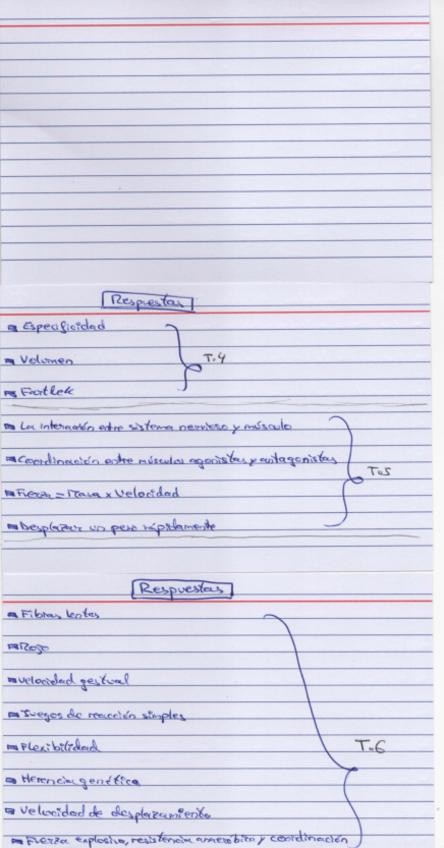 Respuestas
Especificidad
Volumen
T.4
Fartlek
La interacción entre sistema nervioso y músculo
Coordinación entre músculos agonistas y antagonistas
T.5
Fuerza = Masa x Velocidad
Desplazar un peso rápidamente
Respuestas
Fibras lentas
Rojo
Velocidad gestual
Juegos de reacción simples
Flexibilidad
T.6
Herencia genética
Velocidad de desplazamiento
Fuerza explosiva, resistencia anaeróbica y coordinación